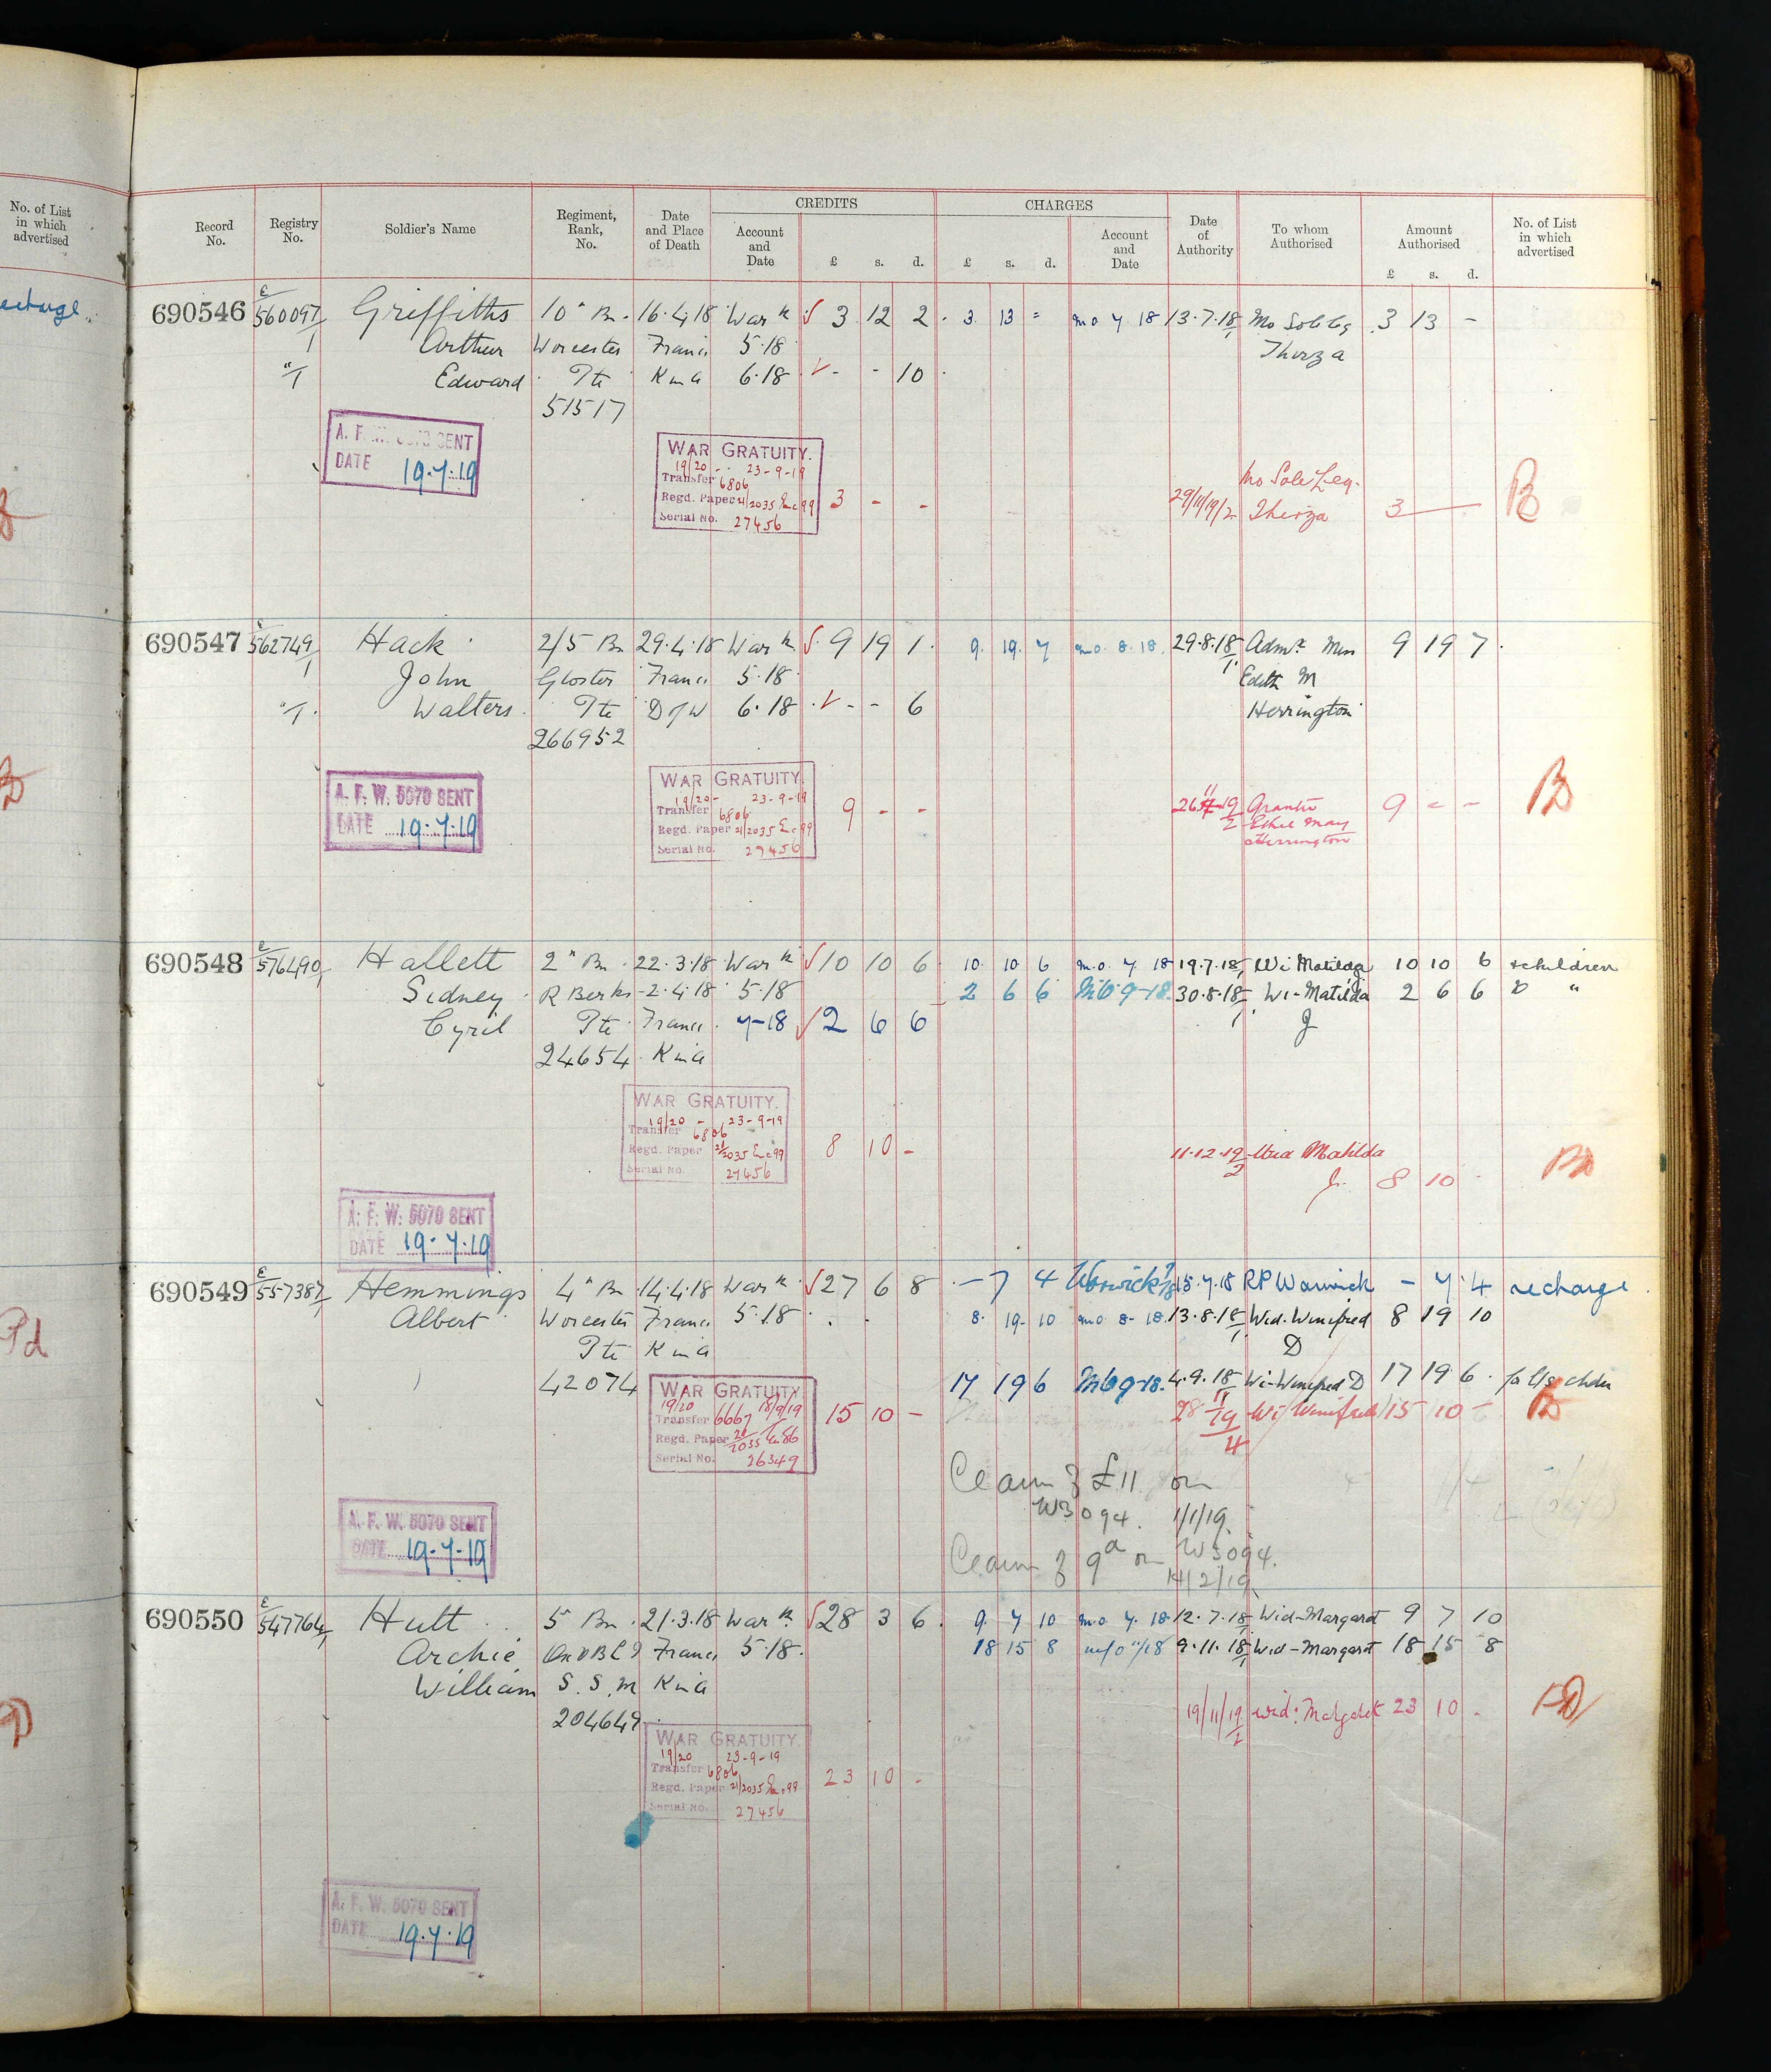 No. of List
in which
advertised
CREDITS CHARGES
Record No. Registry No. Soldier's Name Regiment, Rank, No. Date and Place of Death Account and Date £ s. d. £ s. d. Account and Date Date of Authority To whom Authorised Amount Authorised £ s. d. No. of List in which advertised
690546 E/560097/1 Griffiths 10" Bn 16.4.18 War k 3 12 2 3 13 = mo 7 18 13.7.18/1 Mo Sole Leg 3 13 -
Arthur Worcester France 5.18 Thirza
"T Edward Pte K in A 6.18 - - 10
51517
A. F. W. 5070 SENT
DATE 19.7.19
WAR GRATUITY.
19/20 - 23-9-19
Transfer 6806
Regd. Paper 21/2035 99 3 - -
Serial No. 27456
29/11/19/2 Mo Sole Leg. Thirza 3
690547 562749/1 Hack 2/5 Bn 29.4.18 War k 9 19 1 9 19 7 mo. 8.18 29.8.18/1 Admx Miss 9 19 7
John Gloster France 5.18 Edith M
"T Walters Pte D of W 6.18 - - 6 Herrington
266952
A. F. W. 5070 SENT
DATE 19.7.19
WAR GRATUITY.
19/20 - 23-9-19
Transfer 6806
Regd. Paper 21/2035 99 9 - -
Serial No. 27456
Ethel May
Herrington 9 - -
690548 E/576490/1 Hallett 2" Bn 22.3.18 War k 10 10 6 10 10 6 m.o. 7 18 19.7.18/1 Wi Matilda J 10 10 6 & children
Sidney R Berks -2.4.18 5.18 2 6 6 MO 9-18 30.8.18/1 Wi-Matilda 2 6 6 D "
Cyril Pte France 7-18 2 6 6 J
24654 K in A
WAR GRATUITY.
19/20 - 23-9-19
Transfer 6806
Regd. Paper 21/2035 99 8 10 -
Serial No. 27456
11.12.19/2 Wid Matilda
J. 8 10
A. F. W. 5070 SENT
DATE 19.7.19
690549 E/557387/1 Hemmings 4" Bn 14.4.18 War k 27 6 8 - 7 4 Warwick 15.7.18 RP Warwick - 7 4 recharge
Albert Worcester France 5.18 8 19 10 mo 8 18 13.8.18/1 Wid. Winifred 8 19 10
Pte K in A D
42074 17 19 6 MO 9-18 4.9.18 Wi-Winifred D 17 19 6
WAR GRATUITY.
19/20 18/9/19
Transfer 6667 15 10 - 28 11/19/4 Wi Winifred 15 10 -
Regd. Paper 20/2035 86
Serial No. 26349
Claim of £11 on
W3094. 1/1/19.
Claim of 9d on W3094.
14/2/19
A. F. W. 5070 SENT
DATE 19-7-19
690550 E/547764/1 Hutt 5 Bn 21.3.18 War k 28 3 6 9 7 10 mo 7 18 12.7.18/1 Wid-Margaret 9 7 10
Archie Ox & B L I France 5.18 18 15 8 m/o 11/18 9.11.18/1 Wid-Margaret 18 15 8
William S.S.M K in A
204649
19/11/19/2 Wid: Margaret 23 10 -
WAR GRATUITY.
19/20 23-9-19
Transfer 6806
Regd. Paper 21/2035 99 23 10 -
Serial No. 27456
A. F. W. 5070 SENT
DATE 19.7.19